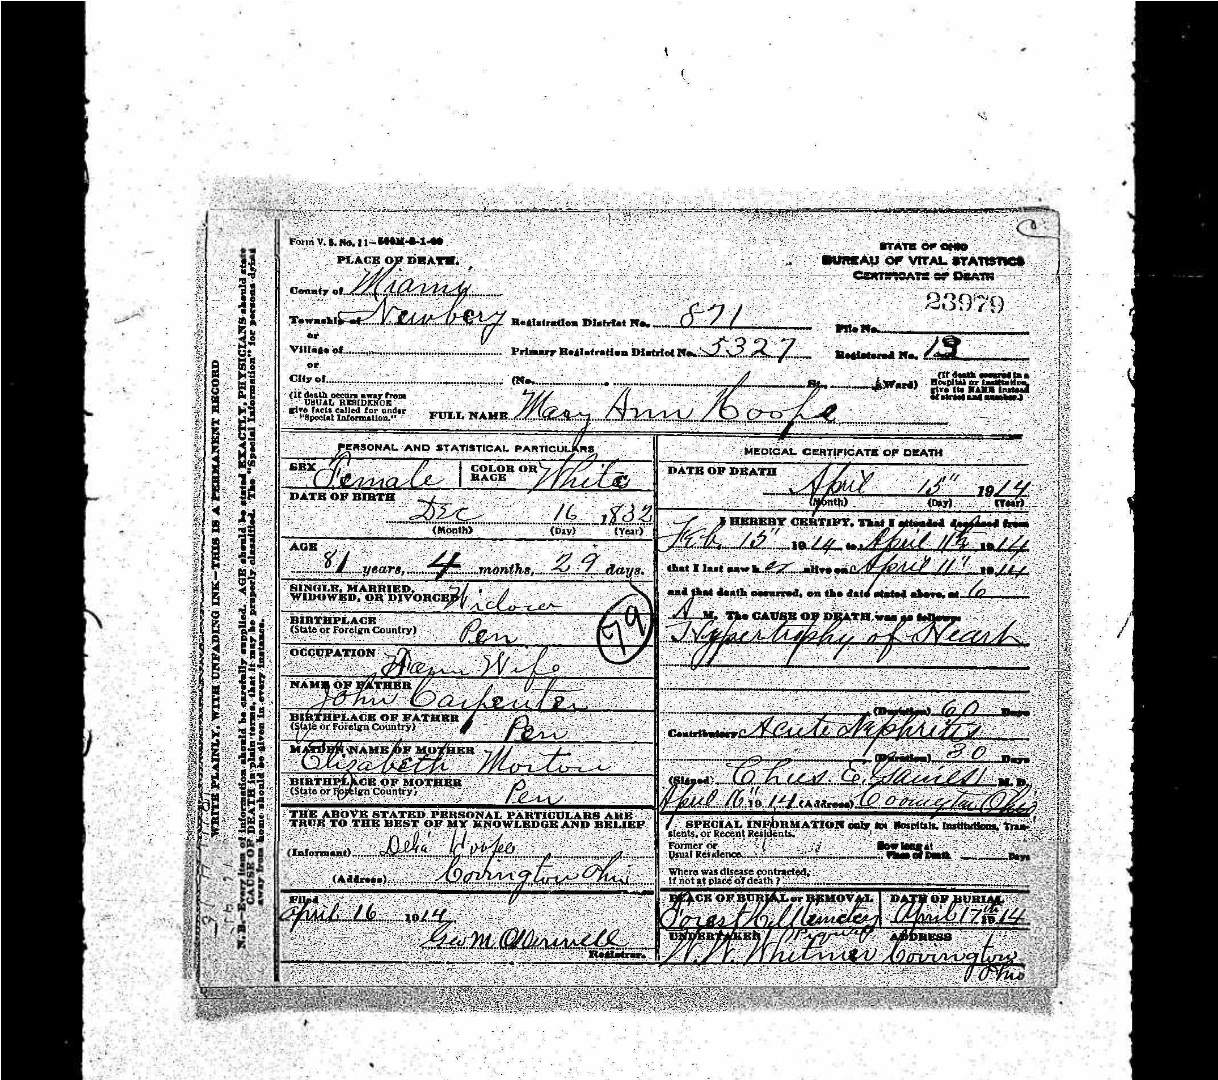 Form V. S. No. 11-500M-8-1-09
PLACE OF DEATH.
County of Miami
Township of Newbery
or
Village of
or
City of
(If death occurs away from
USUAL RESIDENCE
give facts called for under
"Special Information.")
Registration District No. 871
Primary Registration District No. 5327
(No. St., Ward)
STATE OF OHIO
BUREAU OF VITAL STATISTICS
CERTIFICATE OF DEATH
23979
File No.
Registered No. 13
(If death occurred in a
Hospital or Institution,
give its NAME instead
of street and number.)
FULL NAME Mary Ann Hoope
PERSONAL AND STATISTICAL PARTICULARS
SEX Female
COLOR OR RACE White
DATE OF BIRTH
Dec 16, 1832
(Month) (Day) (Year)
AGE
81 years, 4 months, 29 days.
SINGLE, MARRIED,
WIDOWED, OR DIVORCED Widow
BIRTHPLACE
(State or Foreign Country) Pen
79
OCCUPATION Farm Wife
NAME OF FATHER
John Carpenter
BIRTHPLACE OF FATHER
(State or Foreign Country) Pen
MAIDEN NAME OF MOTHER
Elisabeth Morton
BIRTHPLACE OF MOTHER
(State or Foreign Country) Pen
THE ABOVE STATED PERSONAL PARTICULARS ARE
TRUE TO THE BEST OF MY KNOWLEDGE AND BELIEF
(Informant) Delia
(Address) Covington Ohio
Filed
April 16 1914
Geo M
Registrar.
MEDICAL CERTIFICATE OF DEATH
DATE OF DEATH
April 15" 1914
(Month) (Day) (Year)
I HEREBY CERTIFY, That I attended deceased from
Feb. 15" 1914 to April 11th 1914
that I last saw her alive on April 11" 1914
and that death occurred, on the date stated above, at 6
A M. The CAUSE OF DEATH was as follows:
Hypertrophy of Heart
(Duration) 60 Days
Contributory Acute Nephritis
(Duration) 30 Days
(Signed) Chas. E. Gaines M. D.
April 16" 1914 (Address) Covington Ohio
SPECIAL INFORMATION only for Hospitals, Institutions, Tran-
sients, or Recent Residents.
Former or
Usual Residence
How long at
Place of Death Days
Where was disease contracted,
if not at place of death?
PLACE OF BURIAL or REMOVAL
Forest Hill Cemetery
Piqua
DATE OF BURIAL
April 17th 1914
UNDERTAKER
W. W. Whitmer
ADDRESS
Covington
Ohio
WRITE PLAINLY, WITH UNFADING INK—THIS IS A PERMANENT RECORD
N. B.—Every item of information should be carefully supplied. AGE should be stated EXACTLY, PHYSICIANS should state
CAUSE OF DEATH in plain terms, that it may be properly classified. The "Special Information" for persons dying
away from home should be given in every instance.